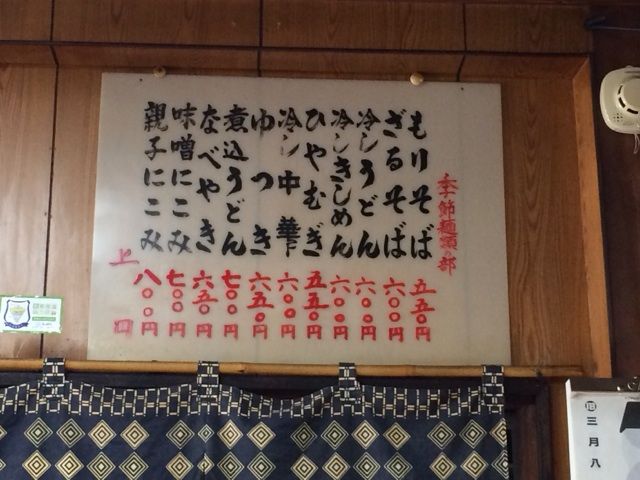 季節麺類部
もりそば 五五〇円
ざるそば 六〇〇円
冷しうどん 六〇〇円
冷しきしめん 六〇〇円
ひやむぎ 五五〇円
冷し中華 六〇〇円
ゆつき 六五〇円
煮込うどん 七〇〇円
なべやき 六五〇円
味噌にこみ 七〇〇円
親子にこみ 八〇〇円
上
三月八